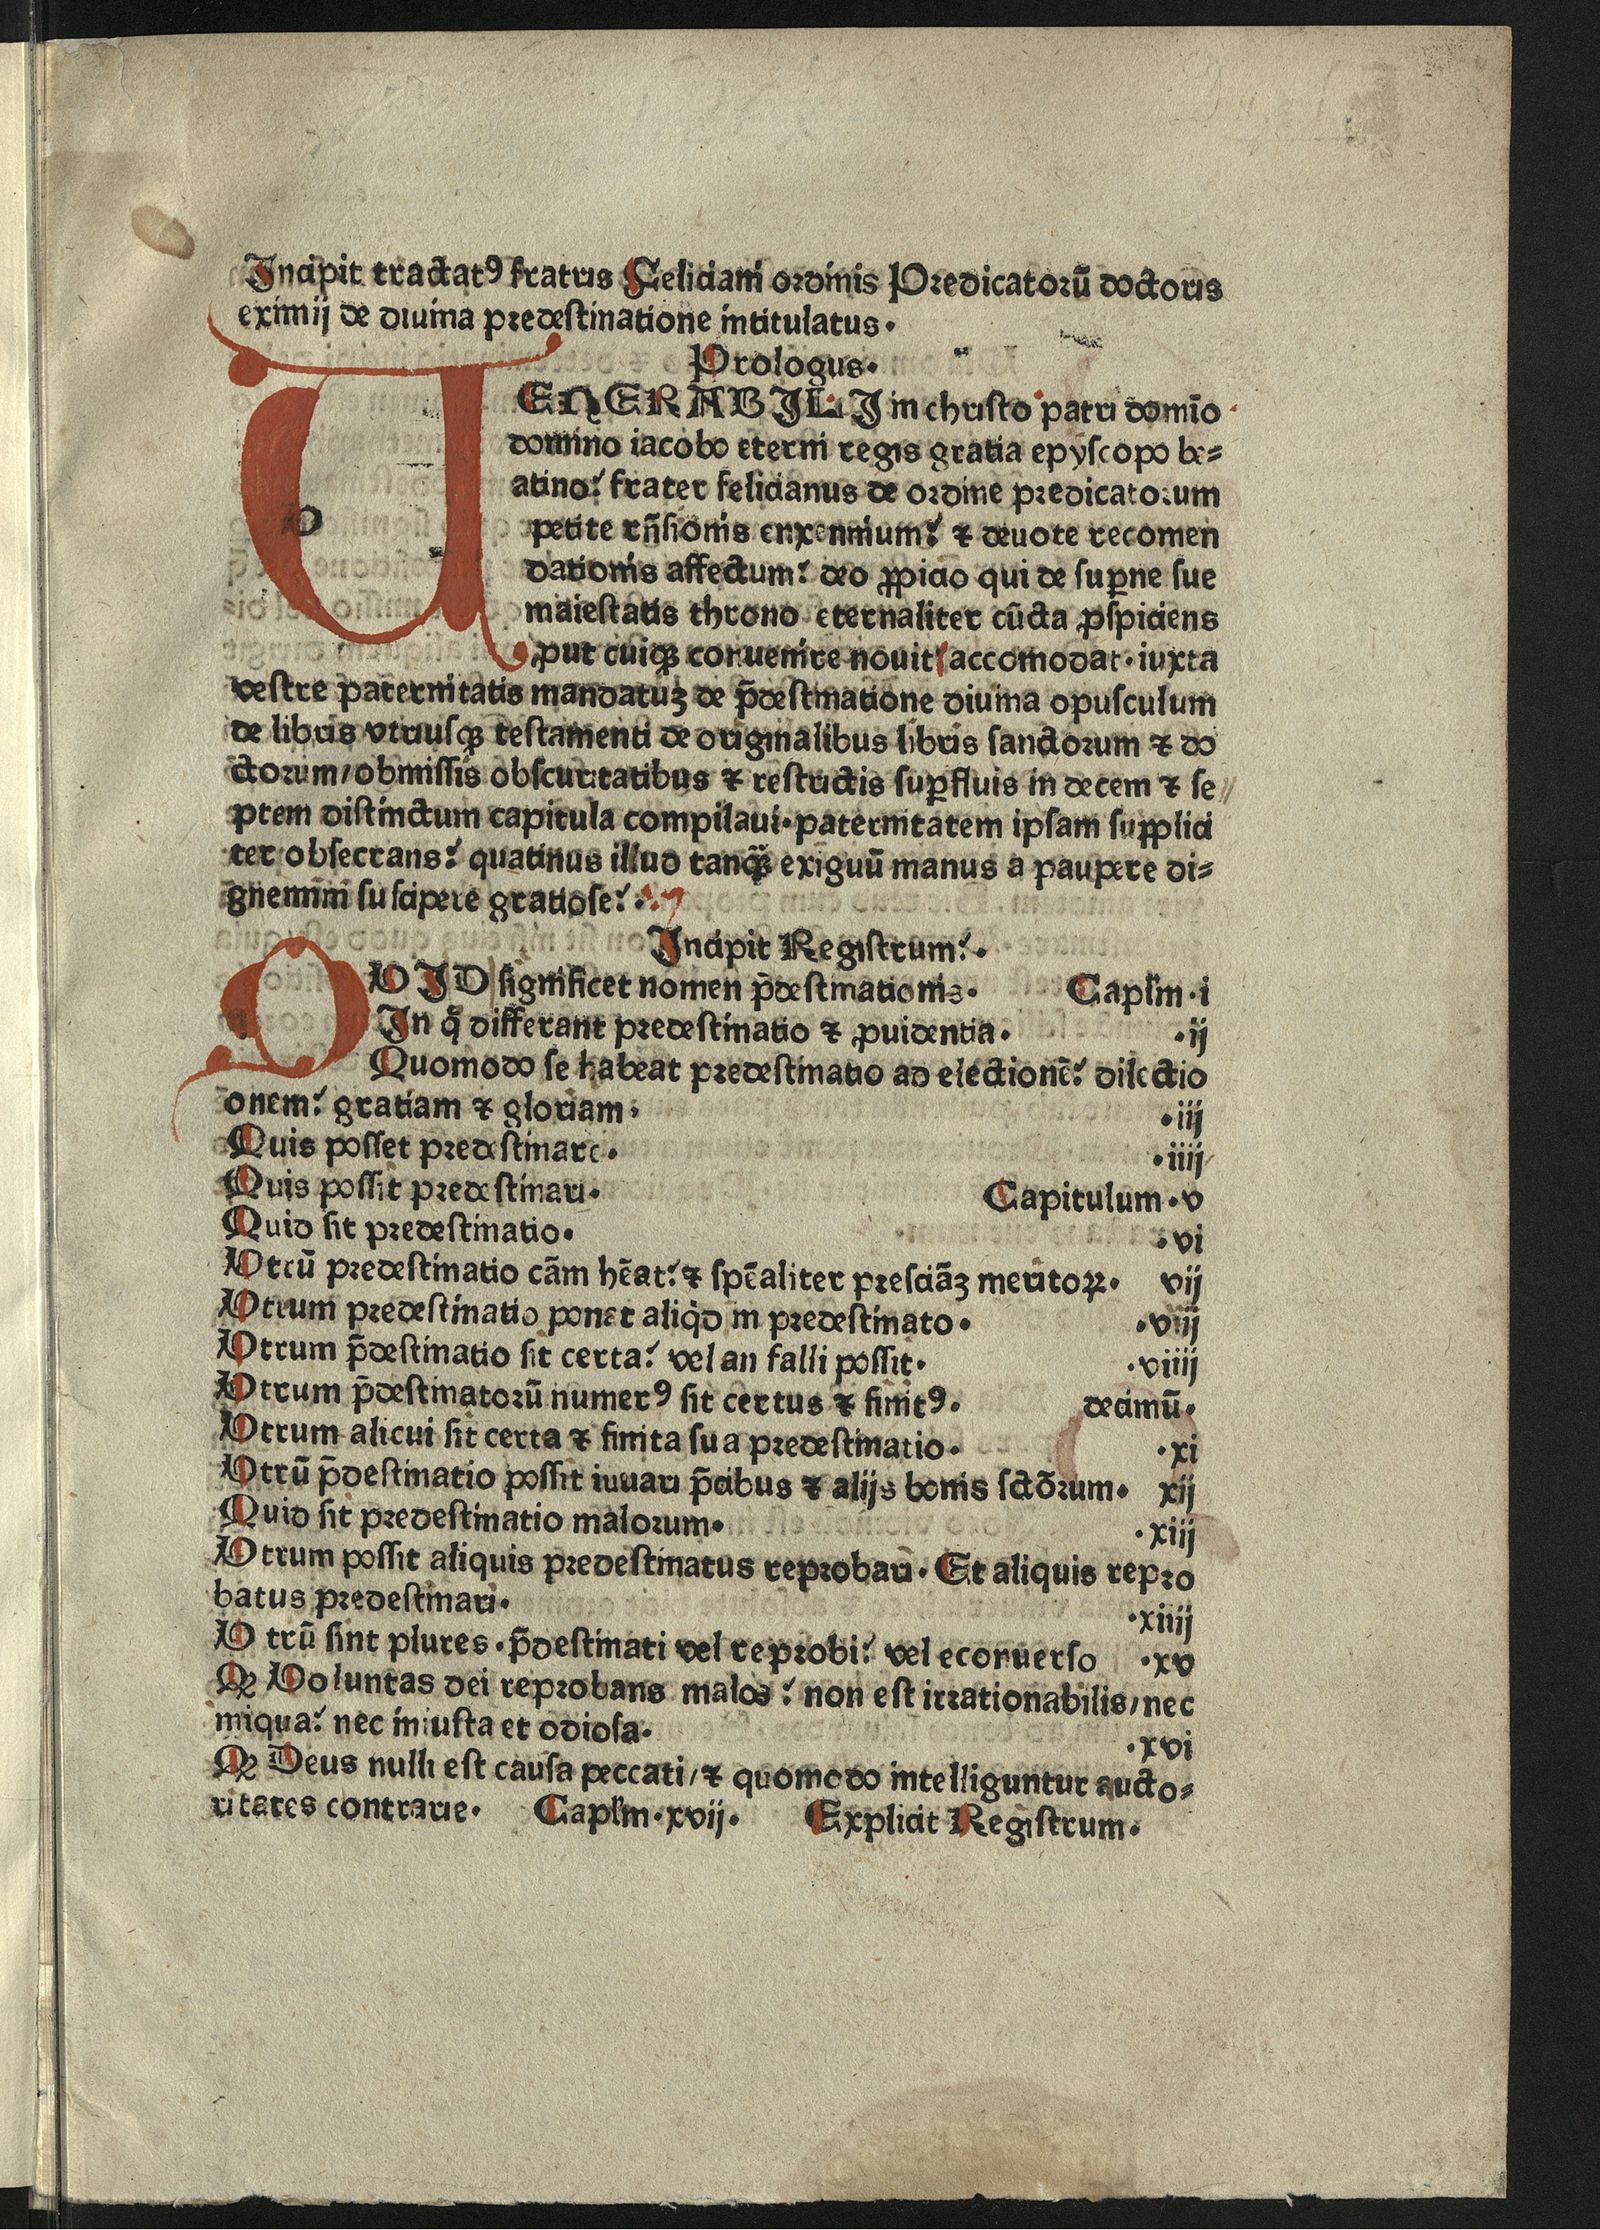 Incipit tractatꝰ fratris Feliciani ordinis Predicatorū doctoris
eximij de diuina predestinatione intitulatus.
Prologus.
VENERABILI in christo patri domīo
domino iacobo eterni regis gratia epyscopo be⸗
atino: frater felicianus de ordine predicatorum
petite rn̄sionis enxennium: ⁊ deuote recomen
dationis affectum: deo ꝓpicio qui de suꝑne sue
maiestatis throno eternaliter cūcta ꝑspiciens
ꝓut cuiqꝫ conuenire nouit accomodat. iuxta
vestre paternitatis mandatuꝫ de p̄destinatione diuina opusculum
de libris vtriusqꝫ testamenti de originalibus libris sanctorum ⁊ do
ctorum/obmissis obscuritatibus ⁊ restrictis suꝑfluis in decem ⁊ se//
ptem distinctum capitula compilaui. paternitatem ipsam supplici
ter obsecrans: quatinus illud tanqꝫ exiguū manus a paupere di⸗
gnemini suscipere gratiose:.
Incipit Registrum:.
QVID significet nomen p̄destinationis. Capl'm.i
In q̊ differant predestinatio ⁊ ꝓuidentia. .ij
Quomodo se habeat predestinatio ad electionē: dilectio
onem: gratiam ⁊ gloriam. .iij
Quis posset predestinare. .iiij
Quis possit predestinari. Capitulum.v
Quid sit predestinatio. .vi
Vtrū predestinatio cām hēat: ⁊ spēaliter presciāꝫ meritoꝝ. vij
Vtrum predestinatio ponat aliqd in predestinato. .viij
Vtrum p̄destinatio sit certa: vel an falli possit. .viiij
Vtrum p̄destinatorū numerꝰ sit certus ⁊ finitꝰ. decimū.
Vtrum alicui sit certa ⁊ finita sua predestinatio. .xi
Vtrū p̄destinatio possit iuuari p̄cibus ⁊ alijs bonis sctōrum. xij
Quid sit predestinatio malorum. .xiij
Vtrum possit aliquis predestinatus reprobari. Et aliquis repro
batus predestinari. .xiiij
Vtrū sint plures. p̄destinati vel reprobi: vel econuerso .xv
Qꝫ Voluntas dei reprobans malos: non est irrationabilis/nec
iniqua: nec iniusta et odiosa. .xvi
Qꝫ Deus nulli est causa peccati/⁊ quomodo intelliguntur aucto⸗
ritates contrarie. Capl'm.xvij. Explicit Registrum.